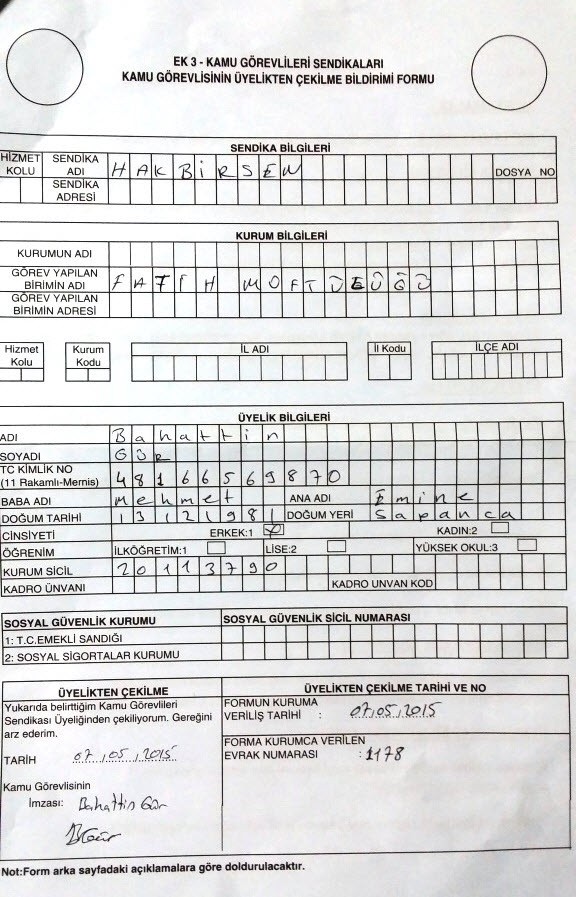 EK 3 - KAMU GÖREVLİLERİ SENDİKALARI
KAMU GÖREVLİSİNİN ÜYELİKTEN ÇEKİLME BİLDİRİMİ FORMU
SENDİKA BİLGİLERİ
HİZMET KOLU SENDİKA ADI HAK BİRSEN DOSYA NO
SENDİKA ADRESİ
KURUM BİLGİLERİ
KURUMUN ADI
GÖREV YAPILAN BİRİMİN ADI FATİH MÜFTÜLÜĞÜ
GÖREV YAPILAN BİRİMİN ADRESİ
Hizmet Kolu Kurum Kodu İL ADI İl Kodu İLÇE ADI
ÜYELİK BİLGİLERİ
ADI Bahattin
SOYADI GÜR
TC KİMLİK NO (11 Rakamlı-Mernis) 48166569870
BABA ADI Mehmet ANA ADI Emine
DOĞUM TARİHİ 13121981 DOĞUM YERİ Sapanca
CİNSİYETİ ERKEK:1 X KADIN:2
ÖĞRENİM İLKÖĞRETİM:1 LİSE:2 YÜKSEK OKUL:3
KURUM SİCİL 20113790
KADRO ÜNVANI KADRO UNVAN KOD
SOSYAL GÜVENLİK KURUMU SOSYAL GÜVENLİK SİCİL NUMARASI
1: T.C.EMEKLİ SANDIĞI
2: SOSYAL SİGORTALAR KURUMU
ÜYELİKTEN ÇEKİLME
Yukarıda belirttiğim Kamu Görevlileri
Sendikası Üyeliğinden çekiliyorum. Gereğini
arz ederim.
TARİH 07.05.2015
Kamu Görevlisinin
İmzası: Bahattin Gür
BGür
ÜYELİKTEN ÇEKİLME TARİHİ VE NO
FORMUN KURUMA
VERİLİŞ TARİHİ : 07.05.2015
FORMA KURUMCA VERİLEN
EVRAK NUMARASI : 1178
Not:Form arka sayfadaki açıklamalara göre doldurulacaktır.